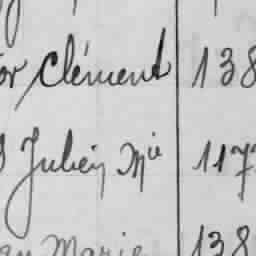 or Clément 138
Julien Mie 117
Marie 138